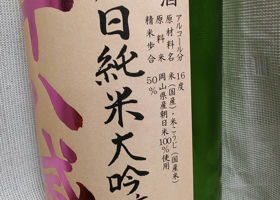 酒
アルコール分 16度
原材料名 米(国産)・米こうじ(国産米)
原料米 岡山県産朝日米100%使用
精米歩合 50%
日純米大吟